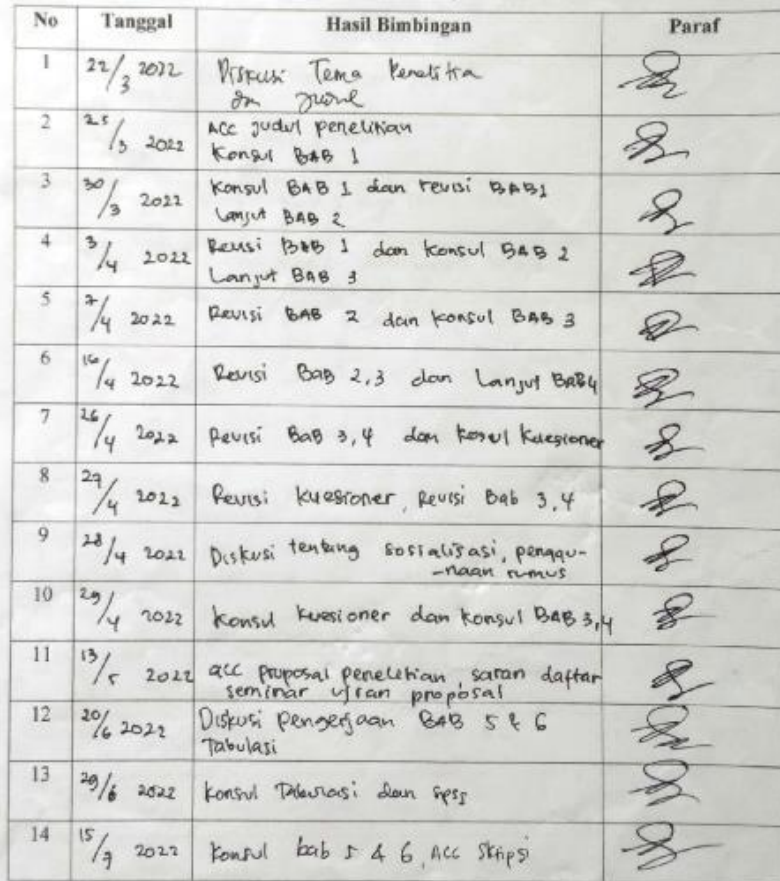 No Tanggal Hasil Bimbingan Paraf
1 22/3 2022 Diskusi Tema Penelitia
dn Judul
2 25/3 2022 ACC judul penelitian
Konsul BAB 1
3 30/3 2022 Konsul BAB 1 dan revisi BAB1
Lanjut BAB 2
4 3/4 2022 Revisi BAB 1 dan Konsul BAB 2
Lanjut BAB 3
5 7/4 2022 Revisi BAB 2 dan konsul BAB 3
6 16/4 2022 Revisi Bab 2,3 dan Lanjut BAB4
7 26/4 2022 Revisi BaB 3,4 dan Kosul Kuesioner
8 27/4 2022 Revisi kuesioner, Revisi Bab 3,4
9 28/4 2022 Diskusi tentang sosialisasi, penggu-
-naan rumus
10 29/4 2022 Konsul Kuesioner dan Konsul BAB 3,4
11 13/5 2022 acc proposal peneletian, saran daftar
seminar ujian proposal
12 20/6 2022 Diskusi Pengerjaan BAB 5 & 6
Tabulasi
13 29/6 2022 Konsul Tabulasi dan spss
14 15/7 2022 Konsul bab 5 & 6, ACC Skripsi